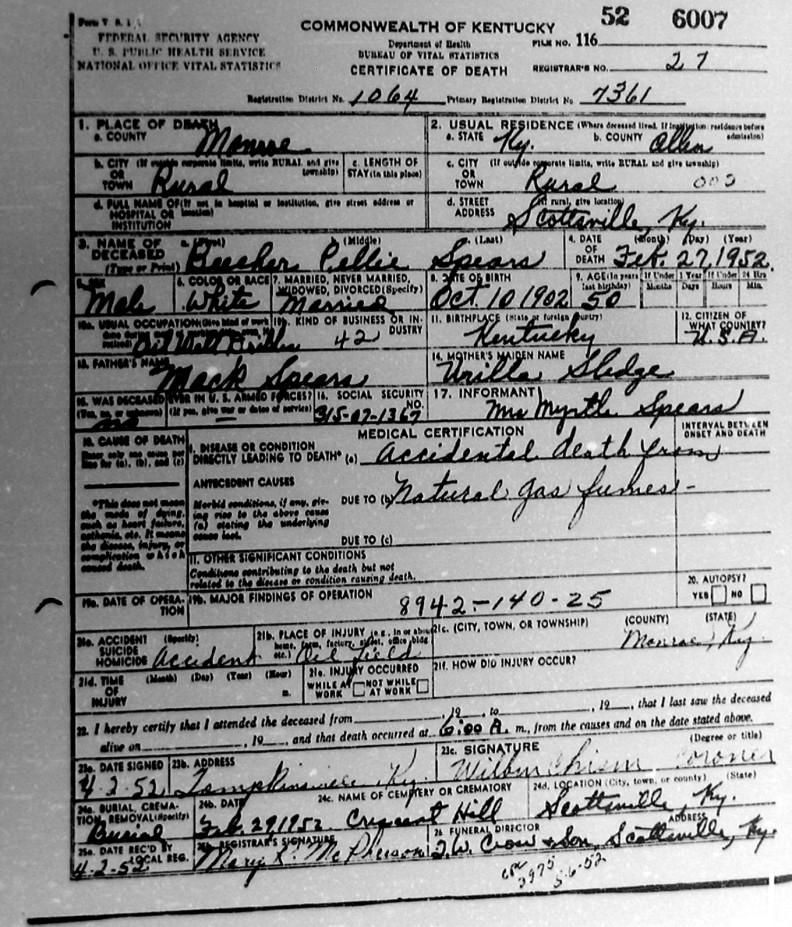 Form V. S. 1
52 6007
COMMONWEALTH OF KENTUCKY
FEDERAL SECURITY AGENCY
U. S. PUBLIC HEALTH SERVICE
NATIONAL OFFICE VITAL STATISTICS
Department of Health
BUREAU OF VITAL STATISTICS
CERTIFICATE OF DEATH
FILE NO. 116
REGISTRAR'S NO. 27
Registration District No. 1064 Primary Registration District No. 7361
1. PLACE OF DEATH
a. COUNTY Monroe
2. USUAL RESIDENCE (Where deceased lived. If institution: residence before admission)
a. STATE Ky. b. COUNTY Allen
b. CITY (If outside corporate limits, write RURAL and give township)
OR
TOWN Rural
c. LENGTH OF STAY (in this place)
c. CITY (If outside corporate limits, write RURAL and give township)
OR
TOWN Rural 000
d. FULL NAME OF (If not in hospital or institution, give street address or location)
HOSPITAL OR
INSTITUTION
d. STREET (If rural, give location)
ADDRESS Scottsville, Ky.
3. NAME OF DECEASED (Type or Print)
a. (First) (Middle) c. (Last)
Beecher Pellie Spears
4. DATE OF DEATH (Month) (Day) (Year)
Feb. 27, 1952
5. SEX
Male
6. COLOR OR RACE
White
7. MARRIED, NEVER MARRIED, WIDOWED, DIVORCED (Specify)
Married
8. DATE OF BIRTH
Oct. 10 1902
9. AGE (In years last birthday) If Under 1 Year If Under 24 Hrs
Months Days Hours Min.
50
10a. USUAL OCCUPATION (Give kind of work
Oil Well Driller
10b. KIND OF BUSINESS OR INDUSTRY
42
11. BIRTHPLACE (State or foreign country)
Kentucky
12. CITIZEN OF WHAT COUNTRY?
U.S.A.
13. FATHER'S NAME
Mack Spears
14. MOTHER'S MAIDEN NAME
Urilla Sledge
15. WAS DECEASED EVER IN U. S. ARMED FORCES?
(Yes, no, or unknown) (If yes, give war or dates of service)
no
16. SOCIAL SECURITY NO.
315-07-1367
17. INFORMANT
Mrs Myrtle Spears
18. CAUSE OF DEATH
Enter only one cause per line for (a), (b), and (c)
MEDICAL CERTIFICATION
INTERVAL BETWEEN ONSET AND DEATH
I. DISEASE OR CONDITION
DIRECTLY LEADING TO DEATH* (a) Accidental death from
*This does not mean the mode of dying, such as heart failure, asthenia, etc. It means the disease, injury, or complication which caused death.
ANTECEDENT CAUSES
Morbid conditions, if any, giving rise to the above cause (a) stating the underlying cause last.
DUE TO (b) Natural gas fumes-
DUE TO (c)
11. OTHER SIGNIFICANT CONDITIONS
Conditions contributing to the death but not related to the disease or condition causing death.
19a. DATE OF OPERATION
19b. MAJOR FINDINGS OF OPERATION
8942-140-25
20. AUTOPSY?
YES NO
21a. ACCIDENT (Specify)
SUICIDE
HOMICIDE Accident
21b. PLACE OF INJURY (e.g., in or about home, farm, factory, street, office bldg. etc.)
Oil Field
21c. (CITY, TOWN, OR TOWNSHIP) (COUNTY) (STATE)
Monroe, Ky.
21d. TIME OF INJURY (Month) (Day) (Year) (Hour) m.
21e. INJURY OCCURRED
WHILE AT WORK NOT WHILE AT WORK
21f. HOW DID INJURY OCCUR?
22. I hereby certify that I attended the deceased from , 19 , to , 19 , that I last saw the deceased
alive on , 19 , and that death occurred at 6:00 A. m., from the causes and on the date stated above.
23a. DATE SIGNED
4-2-52
23b. ADDRESS
Tompkinsville Ky.
23c. SIGNATURE (Degree or title)
Wilbur Chism Coroner
24a. BURIAL, CREMATION, REMOVAL (Specify)
Burial
24b. DATE
Feb. 29, 1952
24c. NAME OF CEMETERY OR CREMATORY
Crescent Hill
24d. LOCATION (City, town, or county) (State)
Scottsville, Ky.
25a. DATE REC'D BY LOCAL REG.
4-2-52
25b. REGISTRAR'S SIGNATURE
Mary K. McPherson
26 FUNERAL DIRECTOR ADDRESS
T.W. Crow & Son, Scottsville, Ky.
3975
5-6-52